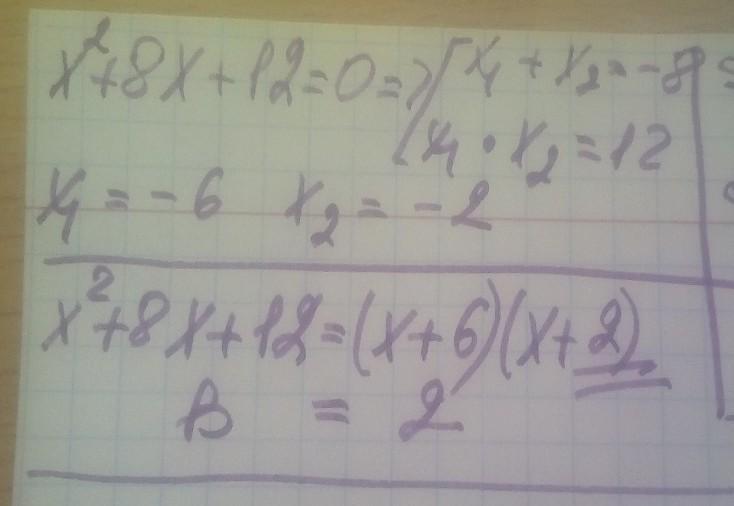 x²+8x+12=0 => [x₁ + x₂ = -8
x₁ • x₂ = 12
x₁ = -6 x₂ = -2
x²+8x+12=(x+6)(x+2)
B = 2